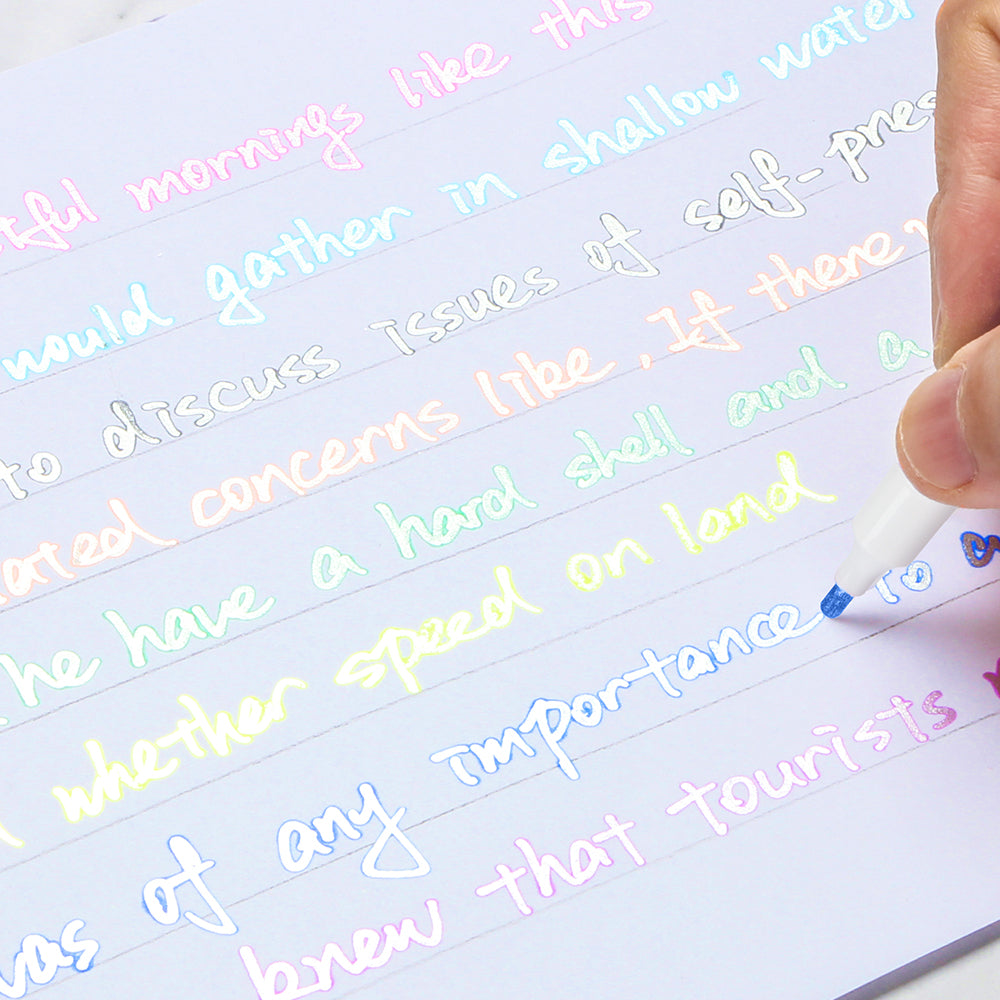 mornings like this
would gather in shallow water
to discuss issues of self-pres
concerns like, If there
he have a hard shell and a
whether speed on land
was of any importance to a
knew that tourists